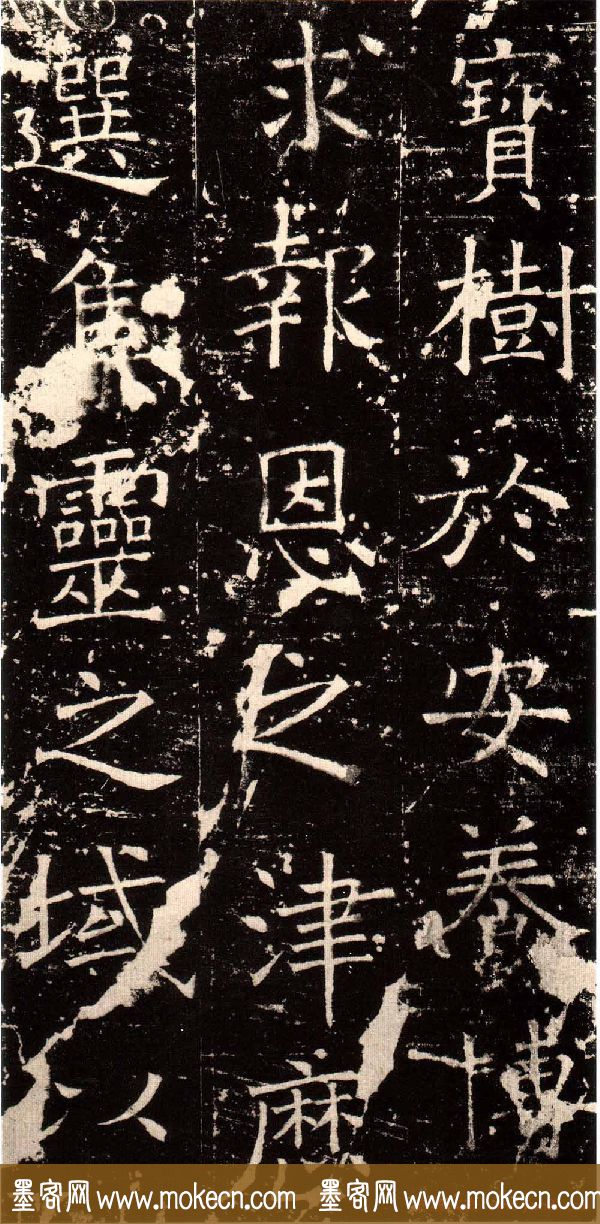 寶樹於安養博
求報恩之津歷
選集靈之域以
墨客网 www.mokecn.com 墨客网 www.mokecn.com